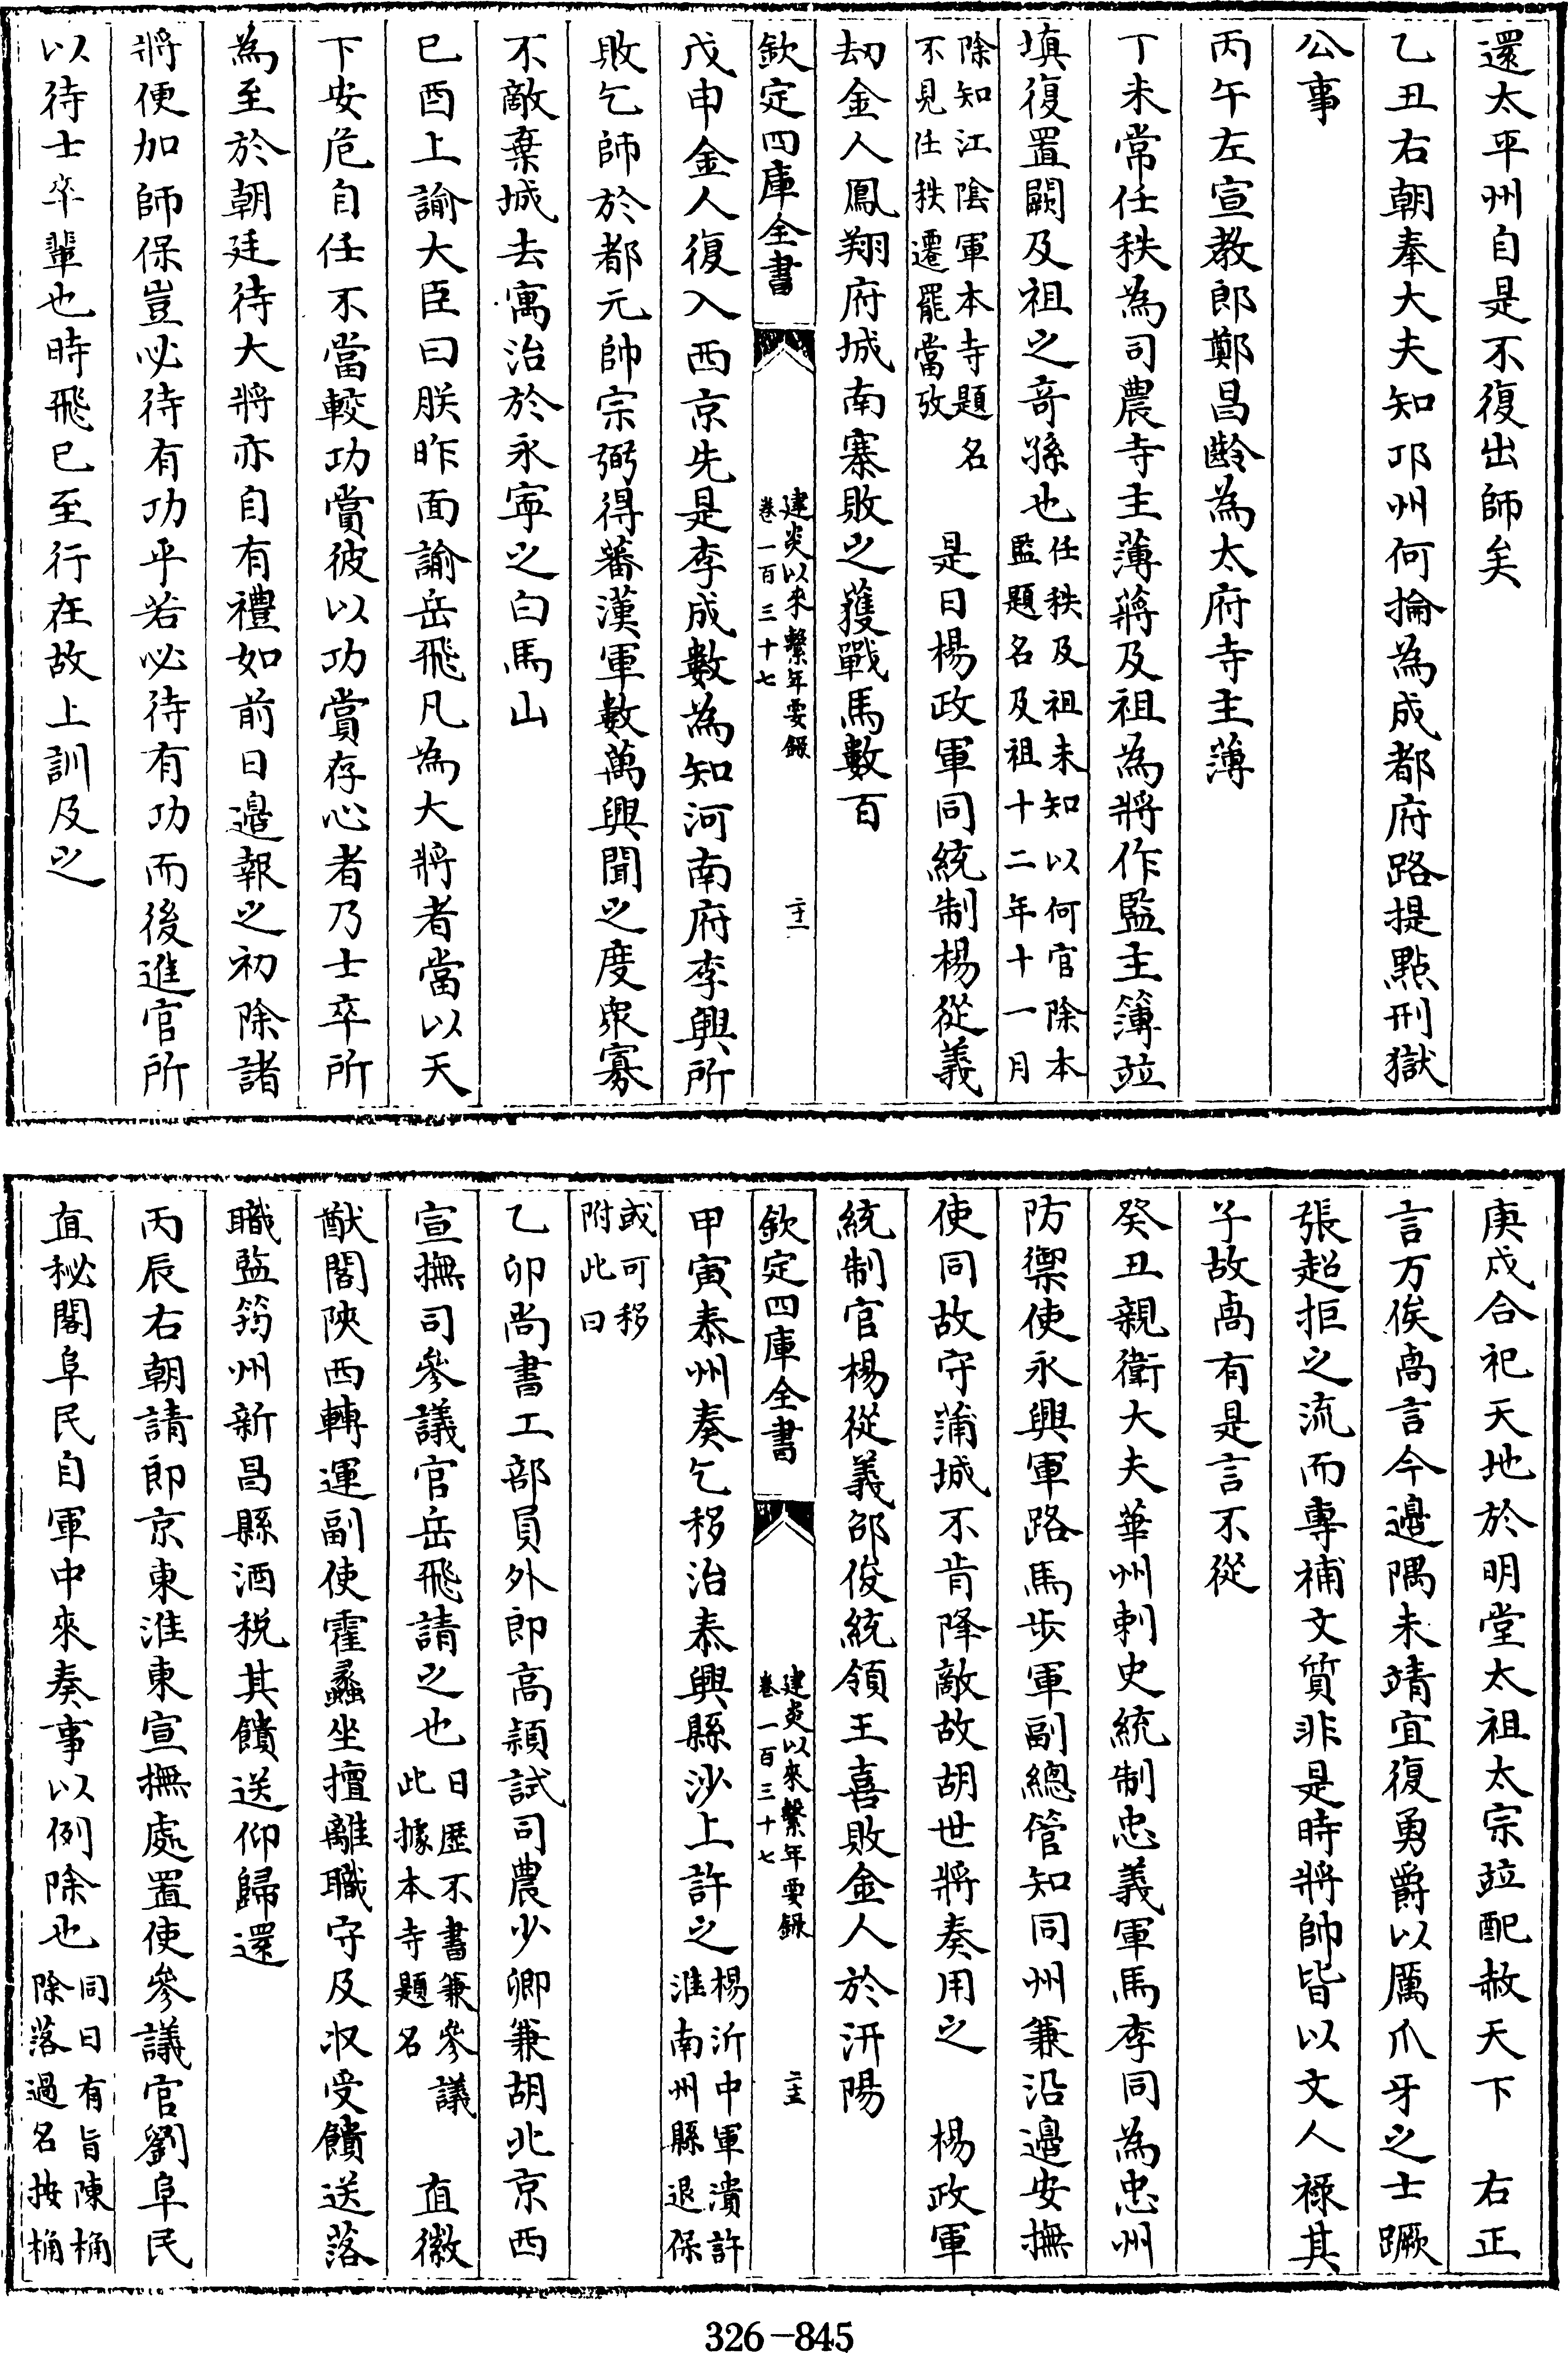 還太平州自是不復出師矣
乙丑右朝奉大夫知邛州何掄為成都府路提點刑獄
公事
丙午左宣教郎鄭昌齡為太府寺主薄
丁未常任秩為司農寺主薄蔣及祖為將作監主簿竝
填復置闕及祖之竒孫也任秩及祖未知以何官除本
監題名及祖十二年十一月
除知江陰軍本寺題名
不見任秩遷罷當攷
是日楊政軍同統制楊從義
刼金人鳳翔府城南寨敗之獲戰馬數百
欽定四庫全書
建炎以來繫年要錄
卷一百三十七
二十一
戊申金人復入西京先是李成數為知河南府李興所
敗乞師於都元帥宗弼得蕃漢軍數萬興聞之度衆寡
不敵棄城去寓治於永寧之白馬山
已酉上諭大臣曰朕昨面諭岳飛凡為大將者當以天
下安危自任不當較功賞彼以功賞存心者乃士卒所
為至於朝廷待大將亦自有禮如前日邉報之初除諸
將便加師保豈必待有功乎若必待有功而後進官所
以待士卒輩也時飛已至行在故上訓及之
庚戌合祀天地於明堂太祖太宗竝配赦天下 右正
言万俟卨言今邉隅未靖宜復勇爵以厲爪牙之士蹶
張超拒之流而專補文質非是時將帥皆以文人祿其
子故卨有是言不從
癸丑親衛大夫華州刺史統制忠義軍馬李同為忠州
防禦使永興軍路馬步軍副總管知同州兼沿邉安撫
使同故守蒲城不肯降敵故胡世將奏用之 楊政軍
統制官楊從義邵俊統領王喜敗金人於汧陽
欽定四庫全書
建炎以來繫年要錄
卷一百三十七
二十二
甲寅泰州奏乞移治泰興縣沙上許之楊沂中軍潰許
淮南州縣退保
或可移
附此日
乙卯尚書工部員外郎高穎試司農少卿兼胡北京西
宣撫司參議官岳飛請之也日歷不書兼參議
此據本寺題名
直徽
猷閣陝西轉運副使霍蠡坐擅離職守及収受饋送落
職監筠州新昌縣酒税其饋送仰歸還
丙辰右朝請郎京東淮東宣撫處置使參議官劉阜民
直秘閣阜民自軍中來奏事以例除也同日有旨陳桷
除落過名按桷
326-845